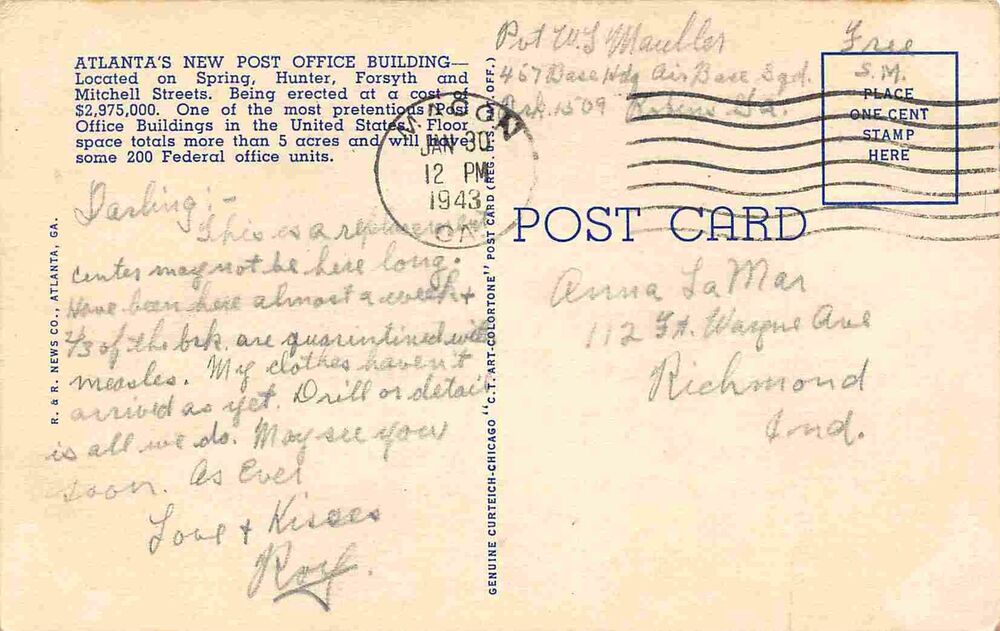 ATLANTA'S NEW POST OFFICE BUILDING—
Located on Spring, Hunter, Forsyth and
Mitchell Streets. Being erected at a cost of
$2,975,000. One of the most pretentious Post
Office Buildings in the United States. Floor
space totals more than 5 acres and will have
some 200 Federal office units.
Darling:-
This is a replacement
center may not be here long.
Have been here almost a week &
2/3 of the brk. are quarintined with
measles. My clothes haven't
arrived as yet. Drill or detail
is all we do. May see you
soon. As Ever
Love & Kisses
Roy.
R. & R. NEWS CO., ATLANTA, GA.
MACON
JAN 30
12 PM
1943
GA
GENUINE CURTEICH-CHICAGO "C.T. ART-COLORTONE" POST CARD (REG. U.S. PAT. OFF.)
Pvt W. S
467 Base Hdq Air Base Sqd.
Brk. 1509 Robins Ga.
Free
S.M.
PLACE
ONE CENT
STAMP
HERE
POST CARD
Anna La Mar
112 Ft. Wayne Ave
Richmond
Ind.